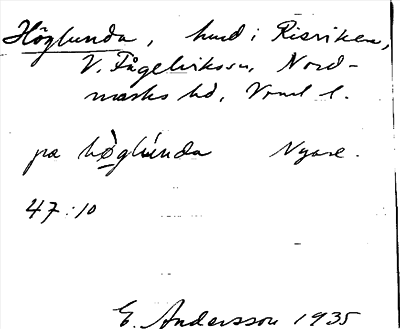 Höglunda, hmd i Risviken,
V. Fågelviks sn, Nord-
marks hd, Vrml l.
pα hòglúnda Nyare.
47:10
E. Andersson 1935